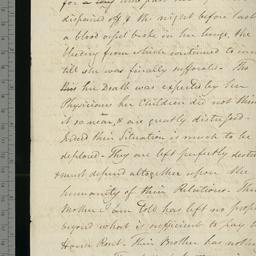 for a
dispaired off, & the night before last
a blood vessel broke in her lungs, the
bleeding from which continued to
till she was finally suffocated. Tho
this her Death was expected by her
Physicians her Children did not think
it so near, & are greatly distressed.
Indeed their Situation is much to be
deplored. They are left perfectly
& must depend altogether upon the
humanity of their Relations. Their
Mother I am told has left no
beyond what is sufficient to pay
House Rent. Their Brother has